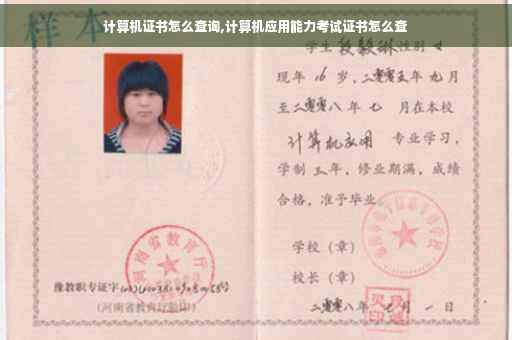 计算机证书怎么查询,计算机应用能力考试证书怎么查
样本
学生 性别 女
现年 16 岁，二零零五年 九月
至二零零八年 七 月在本校
计算机应用 专业学习，
学制 三年，修业期满，成绩
合格，准予毕业
学校（章）
校长（章）
河南省教育厅
豫教职专证字
(河南省教育厅验印)
二零零八年 七 月 一 日